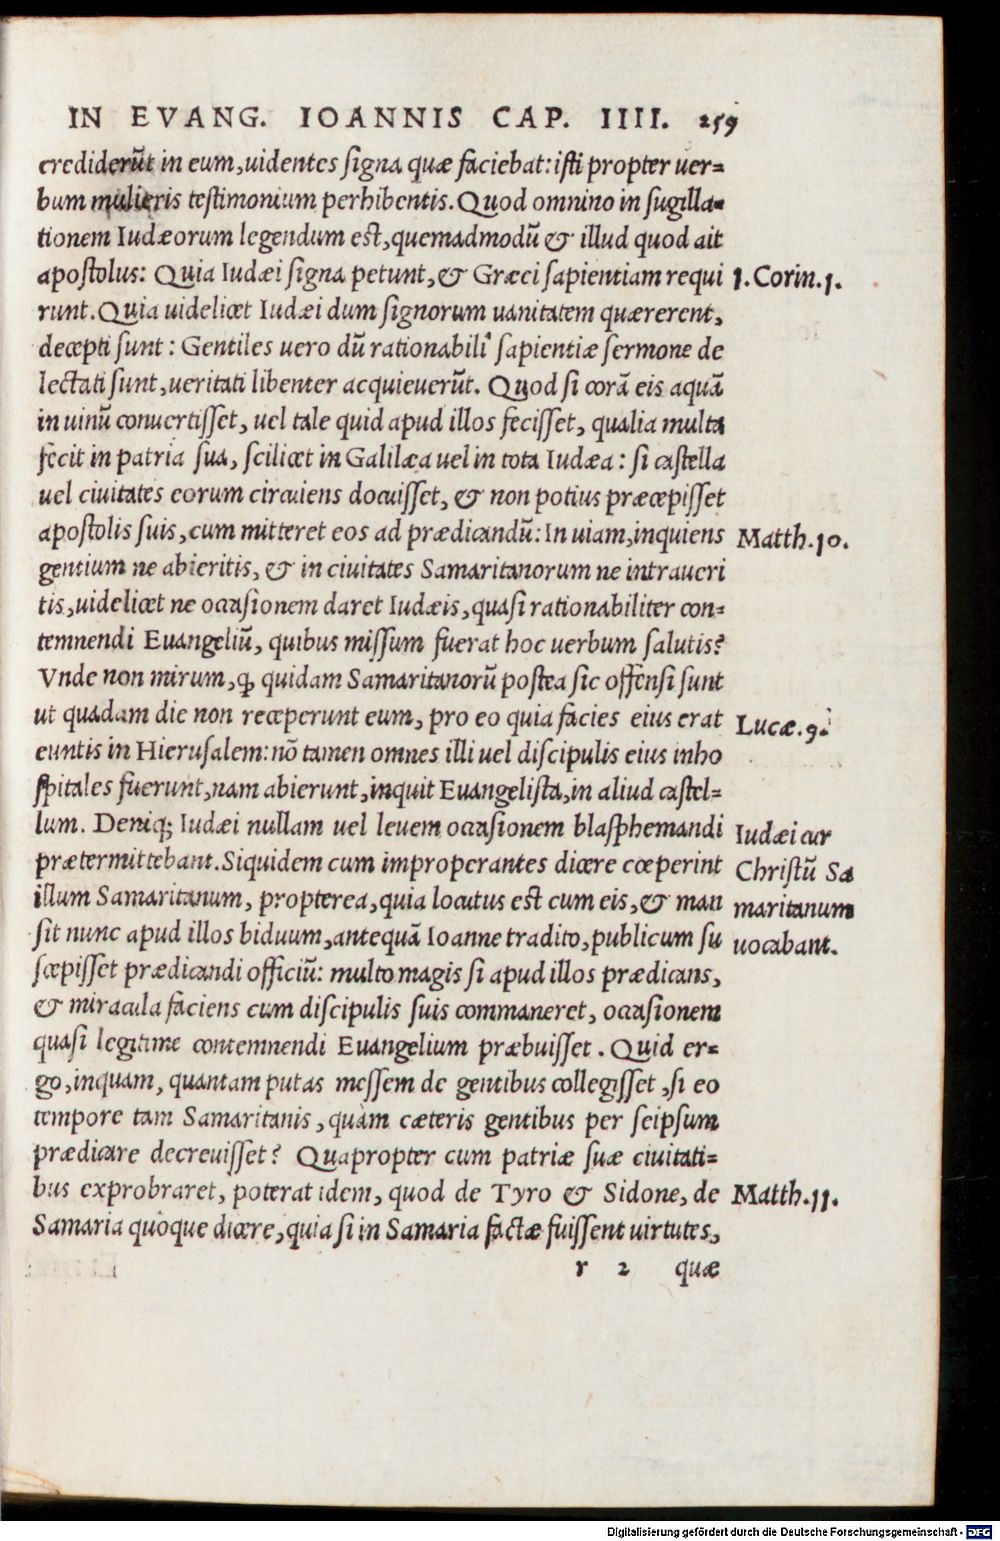 IN EVANG. IOANNIS CAP. IIII. 259
crediderūt in eum, uidentes signa quæ faciebat: isti propter uer=
bum mulieris testimonium perhibentis. Quod omnino in sugilla=
tionem Iudæorum legendum est, quemadmodū & illud quod ait
apostolus: Quia Iudæi signa petunt, & Græci sapientiam requi
1. Corin. 1.
runt. Quia uidelicet Iudæi dum signorum uanitatem quærerent,
decepti sunt: Gentiles uero dū rationabili' sapientiæ sermone de
lectati sunt, ueritati libenter acquieuerūt. Quod si corā eis aquā
in uinū conuertisset, uel tale quid apud illos fecisset, qualia multa
fecit in patria sua, scilicet in Galilæa uel in tota Iudæa: si castella
uel ciuitates eorum circuiens docuisset, & non potius præcepisset
apostolis suis, cum mitteret eos ad prædicandū: In uiam, inquiens
Matth. 10.
gentium ne abieritis, & in ciuitates Samaritanorum ne intraueri
tis, uidelicet ne occasionem daret Iudæis, quasi rationabiliter con=
temnendi Euangeliū, quibus missum fuerat hoc uerbum salutis?
Vnde non mirum, ꝙ quidam Samaritanorū postea sic offensi sunt
ut quadam die non receperunt eum, pro eo quia facies eius erat
Lucæ. 9.
euntis in Hierusalem: nō tamen omnes illi uel discipulis eius inho
spitales fuerunt, nam abierunt, inquit Euangelista, in aliud castel=
lum. Deniq; Iudæi nullam uel leuem occasionem blasphemandi
Iudæi cur
prætermittebant. Siquidem cum improperantes dicere cœperint
Christū Sa
illum Samaritanum, propterea, quia locutus est cum eis, & man
maritanum
sit nunc apud illos biduum, antequā Ioanne tradito, publicum su
uocabant.
scepisset prædicandi officiū: multo magis si apud illos prædicans,
& miracula faciens cum discipulis suis commaneret, occasionem
quasi legitime contemnendi Euangelium præbuisset. Quid er=
go, inquam, quantam putas messem de gentibus collegisset, si eo
tempore tam Samaritanis, quàm cæteris gentibus per seipsum
prædicare decreuisset? Quapropter cum patriæ suæ ciuitati=
bus exprobraret, poterat idem, quod de Tyro & Sidone, de
Matth. 11.
Samaria quoque dicere, quia si in Samaria factæ fuissent uirtutes,
r 2 quæ
Digitalisierung gefördert durch die Deutsche Forschungsgemeinschaft - DFG